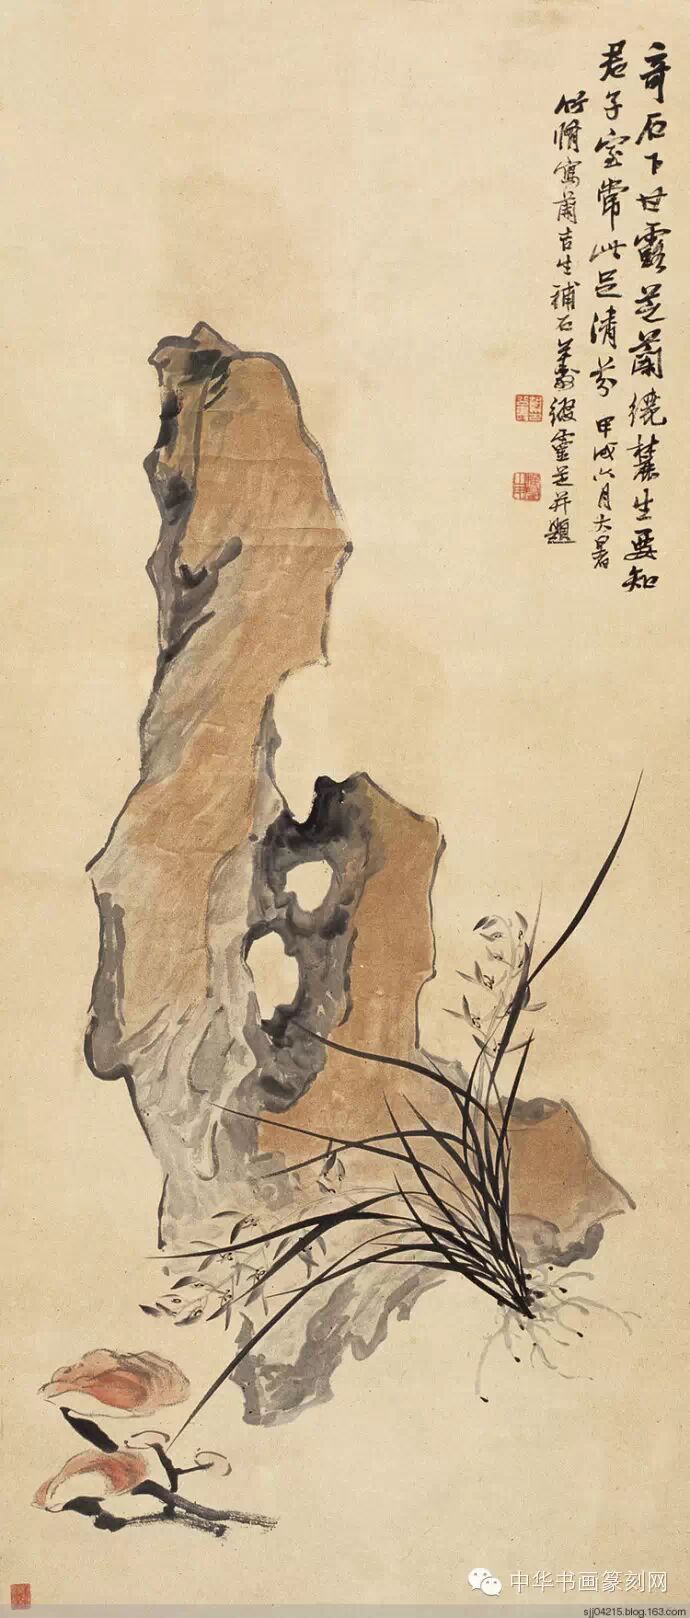 奇石下甘露芝蘭繞麓生要知
君子室常此足清芬 甲戌六月大暑
竹脩寫蘭吉生補石綴靈芝并題
中华书画篆刻网
sjj04215.blog.163.com